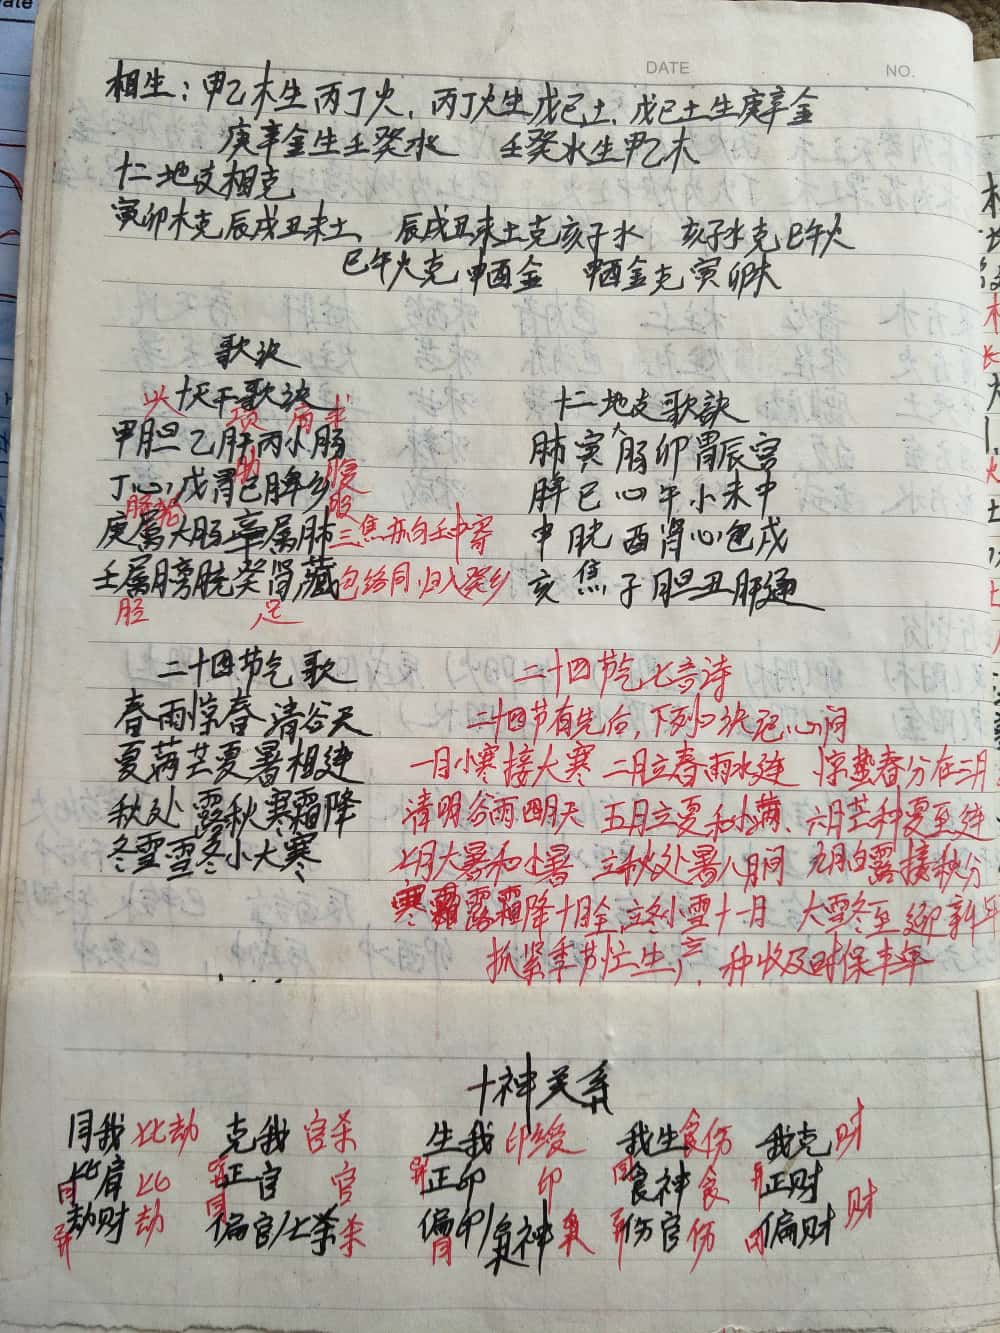 DATE NO.
相生：甲乙木生丙丁火，丙丁火生戊己土、戊己土生庚辛金
庚辛金生壬癸水 壬癸水生甲乙木
十二地支相克
寅卯木克辰戌丑未土、 辰戌丑未土克亥子水 亥子水克巳午火
巳午火克申酉金 申酉金克寅卯木
歌诀
十天干歌诀
头 项 肩 求
甲胆乙肝丙小肠
肋 腹
丁心戊胃己脾乡
脐 股
庚属大肠辛属肺 三焦亦向壬中寄
壬属膀胱癸肾藏 包络同归入癸乡
胫 足
十二地支歌訣
肺寅大肠卯胃辰宫
脾巳心午小未中
申胱酉肾心包戌
亥焦子胆丑肝通
二十四节气歌
春雨惊春清谷天
夏满芒夏暑相连
秋处露秋寒霜降
冬雪雪冬小大寒
二十四节气七言诗
二十四节有先后，下列口诀记心间
一月小寒接大寒 二月立春雨水连 惊蛰春分在三月
清明谷雨四月天 五月立夏和小满、六月芒种夏至连
七月大暑和小暑 立秋处暑八月间 九月白露接秋分
寒露霜降十月全 立冬小雪十一月 大雪冬至迎新年
抓紧季节忙生产 种收及时保丰年
十神关系
同我 比劫 克我 官杀 生我 印绶 我生食伤 我克 财
同 比肩 比 异 正官 官 异 正印 印 同 食神 食 异 正财
异 劫财 劫 同 偏官/七杀 杀 同 偏印/枭神 枭 异 伤官 伤 同 偏财 财